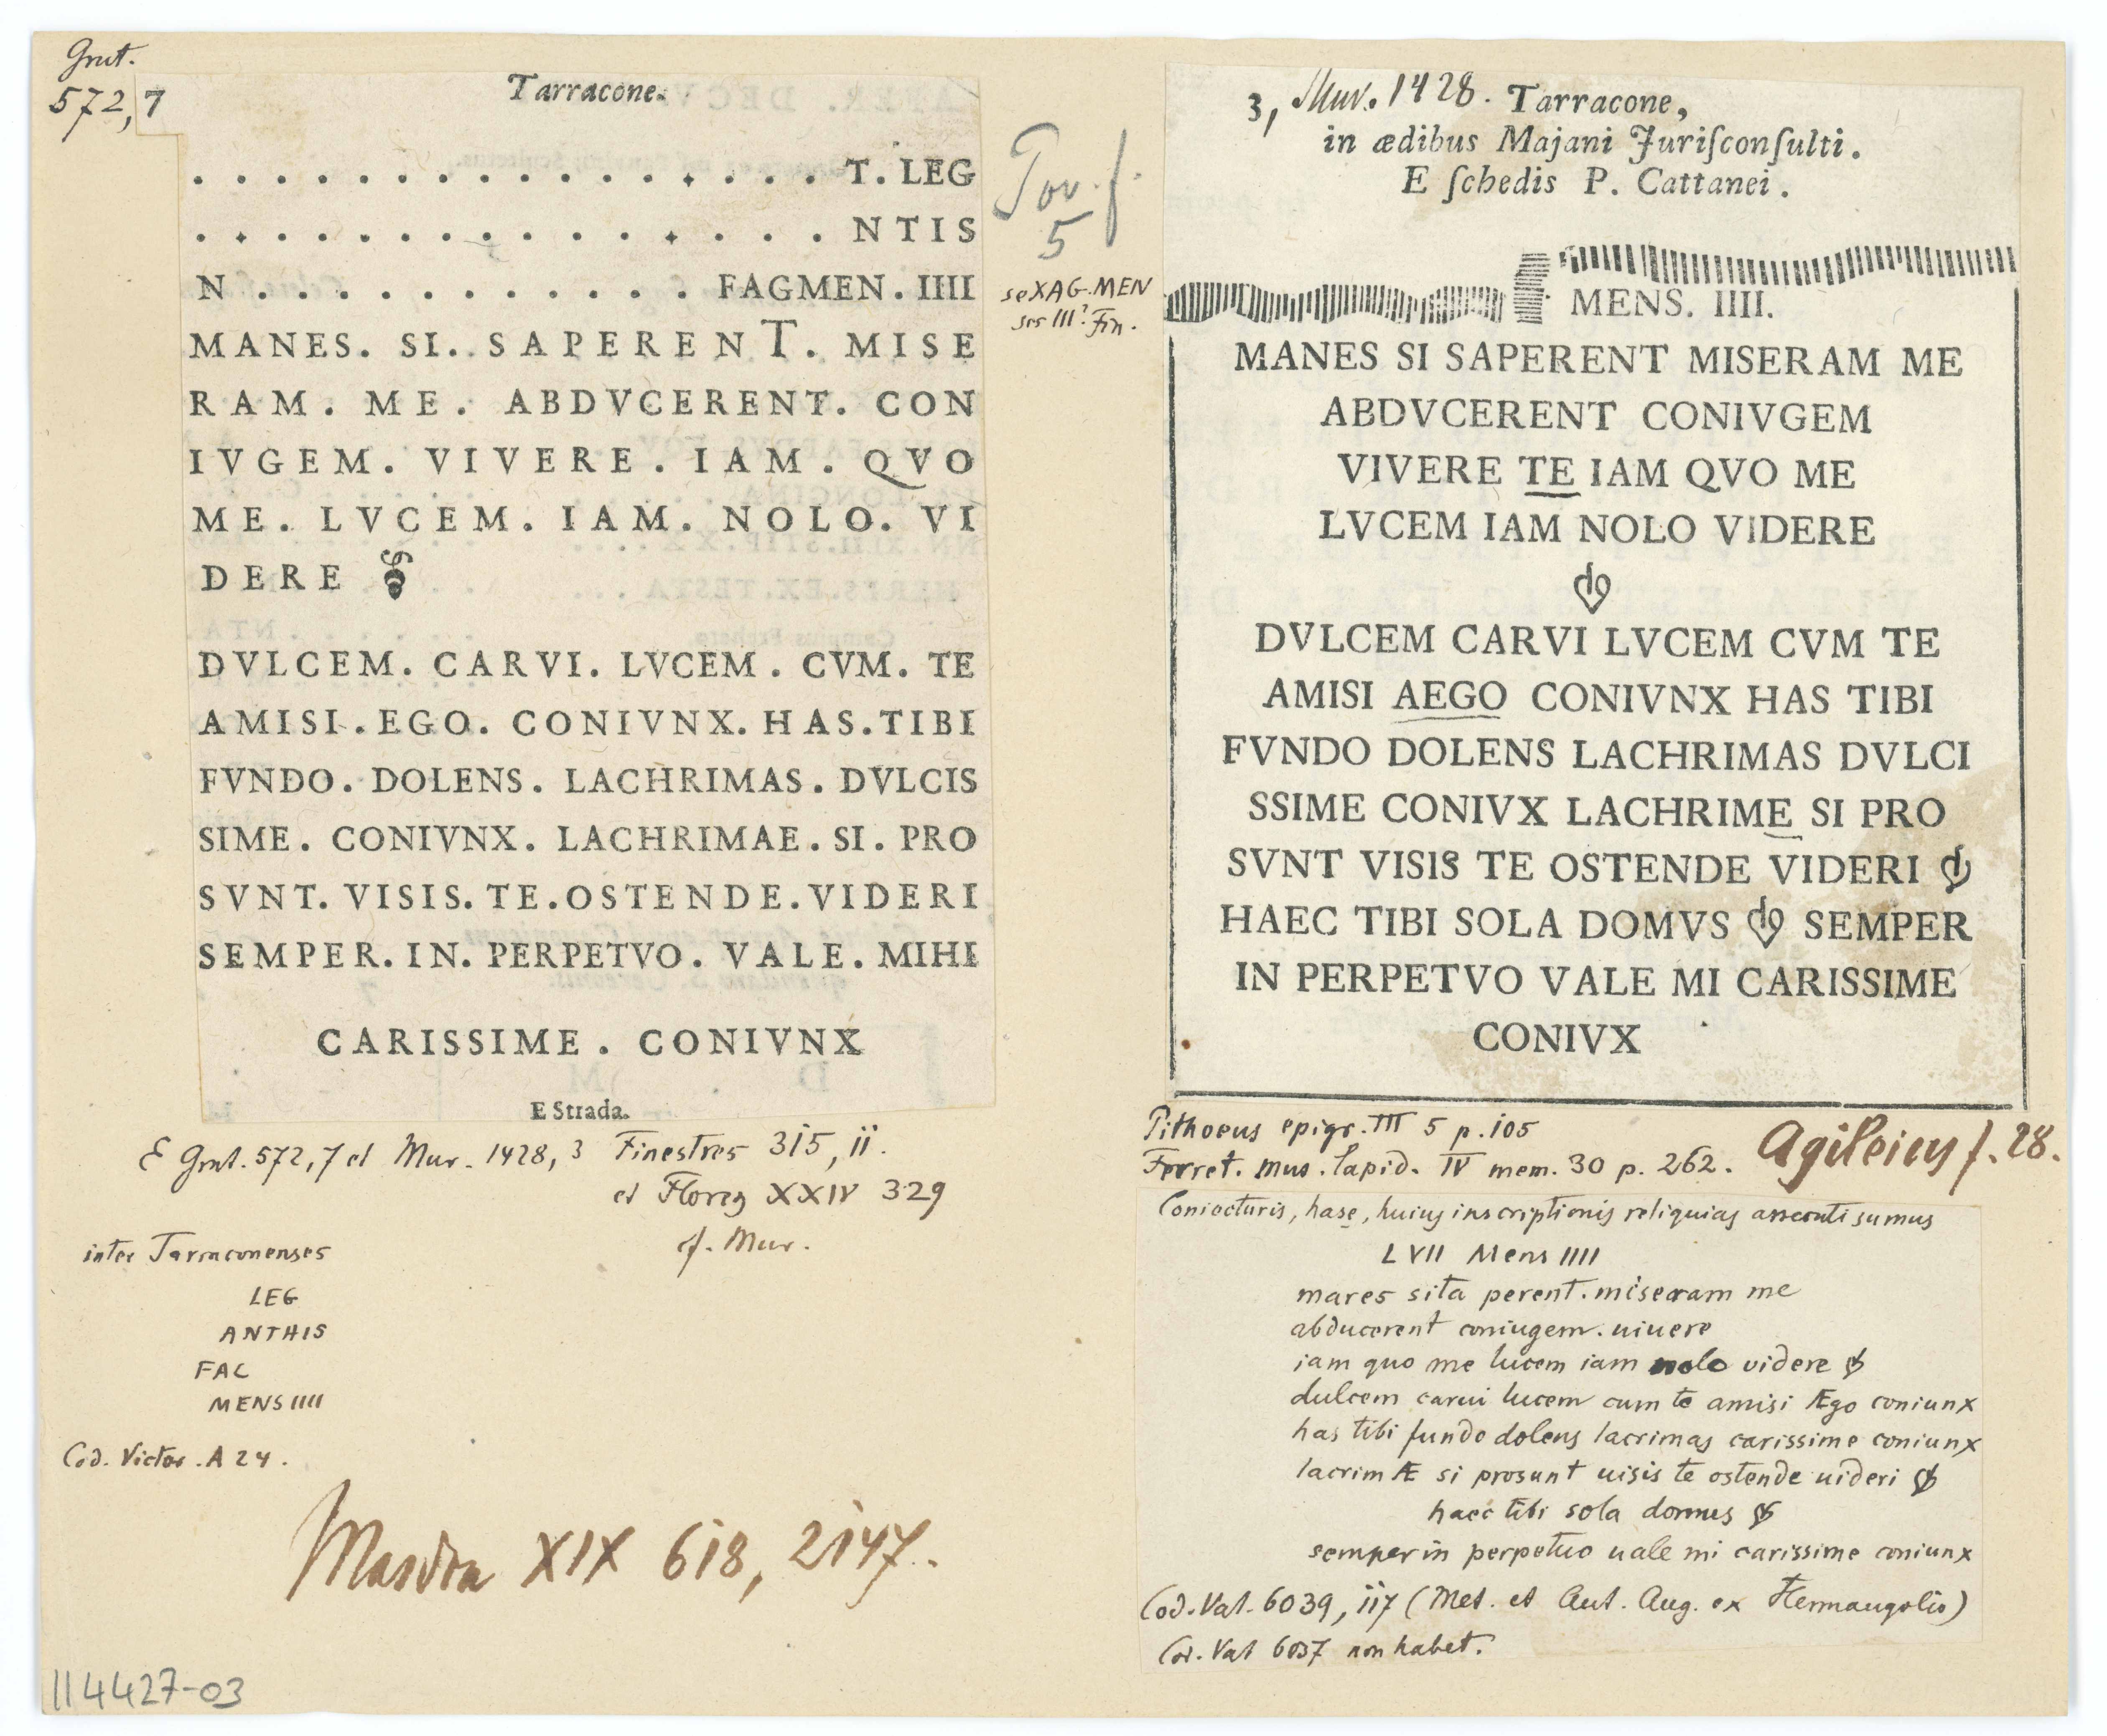 Grut.
572, 7
Tarracone.
. . . . . . . . . . . . . . . . T. LEG
. . . . . . . . . . . . . . . . NTIS
N . . . . . . . . . . . . FAGMEN. IIII
MANES. SI. SAPERENT. MISE
RAM. ME. ABDVCERENT. CON
IVGEM. VIVERE. IAM. QVO
ME. LVCEM. IAM. NOLO. VI
DERE
DVLCEM. CARVI. LVCEM. CVM. TE
AMISI. EGO. CONIVNX. HAS. TIBI
FVNDO. DOLENS. LACHRIMAS. DVLCIS
SIME. CONIVNX. LACHRIMAE. SI. PRO
SVNT. VISIS. TE. OSTENDE. VIDERI
SEMPER. IN. PERPETVO. VALE. MIHI
CARISSIME. CONIVNX
E Strada.
5
seXAG.MEN
III? Fin.
E Grut. 572, 7 et Mur. 1428, 3 Finestres 315, ii.
et Florez XXIV 329
cf. Mur.
inter Tarraconenses
LEG
ANTHIS
FAC
MENS IIII
Cod. Victor. A 24.
Masdeu XIX 618, 2147.
114427-03
3, Mur. 1428. Tarracone,
in ædibus Majani Juriſconſulti.
E ſchedis P. Cattanei.
MENS. IIII.
MANES SI SAPERENT MISERAM ME
ABDVCERENT CONIVGEM
VIVERE TE IAM QVO ME
LVCEM IAM NOLO VIDERE
DVLCEM CARVI LVCEM CVM TE
AMISI AEGO CONIVNX HAS TIBI
FVNDO DOLENS LACHRIMAS DVLCI
SSIME CONIVX LACHRIME SI PRO
SVNT VISIS TE OSTENDE VIDERI
HAEC TIBI SOLA DOMVS SEMPER
IN PERPETVO VALE MI CARISSIME
CONIVX
Pithoeus epigr. III 5 p. 105
Ferret. mus. lapid. IV mem. 30 p. 262. Agileius f. 28.
Coniecturis, hase, huius inscriptionis reliquias assecuti sumus
LVII Mens IIII
mares sita perent. miseram me
abducerent coniugem. uiuere
iam quo me lucem iam nolo videre
dulcem carui lucem cum te amisi Ægo coniunx
has tibi fundo dolens lacrimas carissime coniunx
lacrimÆ si prosunt uisis te ostende uideri
haec tibi sola domus
semper in perpetuo uale mi carissime coniunx
Cod. Vat. 6039, 117 (Met. et Ant. Aug. ex Hermangolio)
Cod. Vat 6037 non habet.